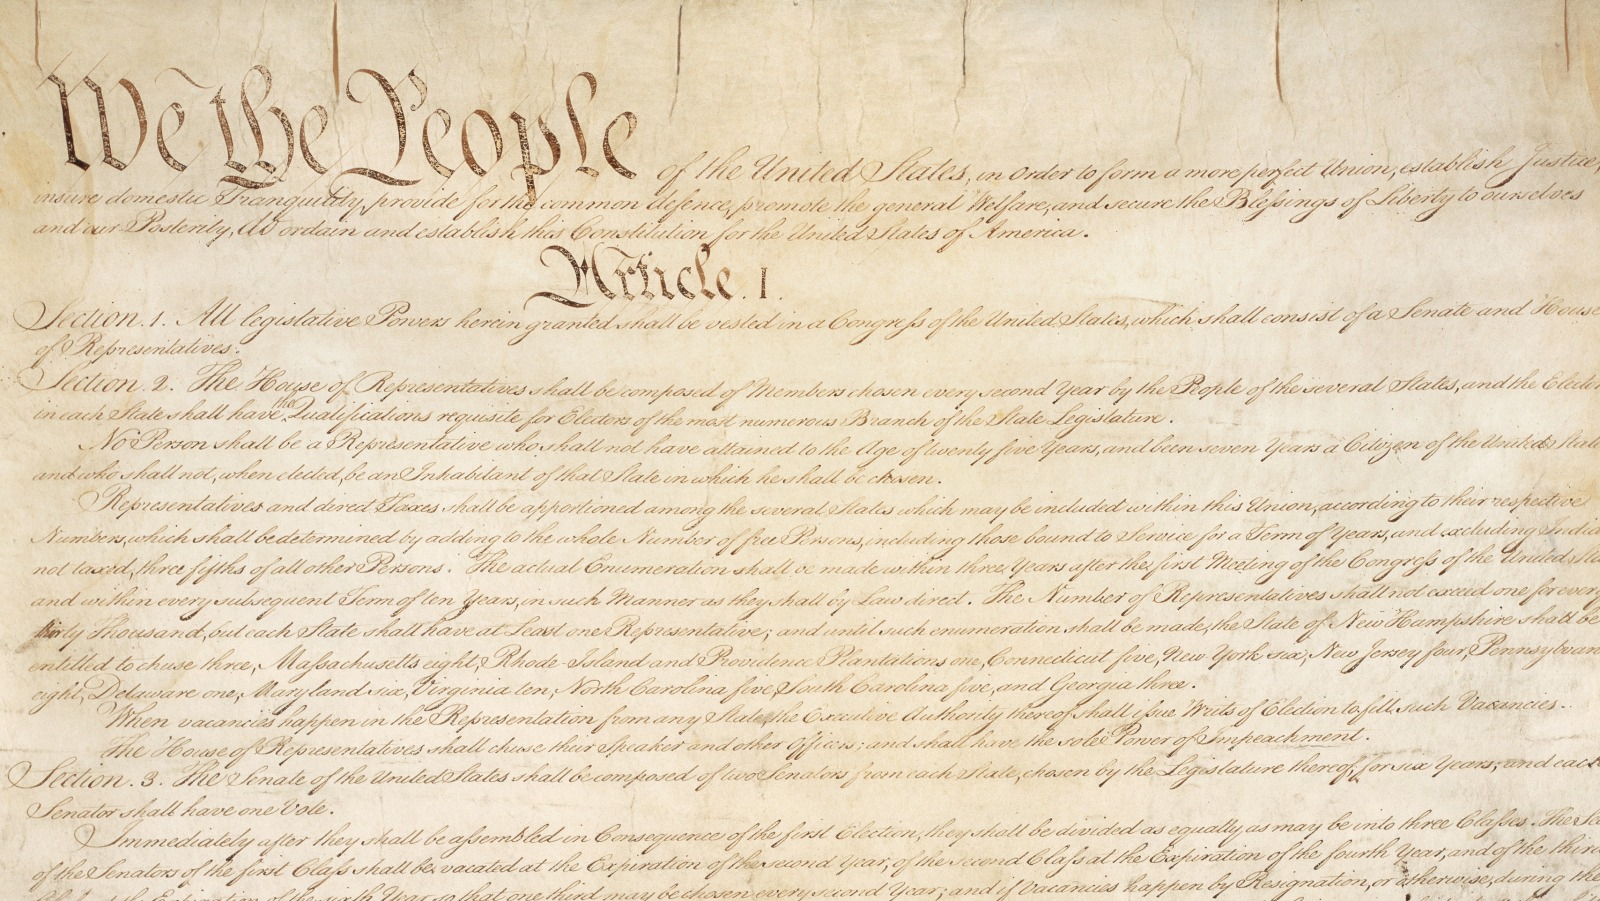 We the People of the United States, in Order to form a more perfect Union, establish Justice,
insure domestic Tranquility, provide for the common defence, promote the general Welfare, and secure the Blessings of Liberty to ourselves
and our Posterity, do ordain and establish this Constitution for the United States of America.
Article. I.
Section. 1. All legislative Powers herein granted shall be vested in a Congress of the United States, which shall consist of a Senate and House
of Representatives.
Section. 2. The House of Representatives shall be composed of Members chosen every second Year by the People of the several States, and the
in each State shall have the Qualifications requisite for Electors of the most numerous Branch of the State Legislature.
No Person shall be a Representative who shall not have attained to the Age of twenty five Years, and been seven Years a Citizen of the United
and who shall not, when elected, be an Inhabitant of that State in which he shall be chosen.
Representatives and direct Taxes shall be apportioned among the several States which may be included within this Union, according to their respective
Numbers, which shall be determined by adding to the whole Number of free Persons, including those bound to Service for a Term of Years, and excluding
not taxed, three fifths of all other Persons. The actual Enumeration shall be made within three Years after the first Meeting of the Congress of the United
and within every subsequent Term of ten Years, in such Manner as they shall by Law direct. The Number of Representatives shall not exceed one for every
thirty Thousand, but each State shall have at Least one Representative; and until such enumeration shall be made, the State of New Hampshire shall be
entitled to chuse three, Massachusetts eight, Rhode-Island and Providence Plantations one, Connecticut five, New-York six, New Jersey four,
eight, Delaware one, Maryland six, Virginia ten, North Carolina five, South Carolina five, and Georgia three.
When vacancies happen in the Representation from any State, the Executive Authority thereof shall issue Writs of Election to fill such Vacancies.
The House of Representatives shall chuse their Speaker and other Officers; and shall have the sole Power of Impeachment.
Section. 3. The Senate of the United States shall be composed of two Senators from each State, chosen by the Legislature thereof, for six Years; and each
Senator shall have one Vote.
Immediately after they shall be assembled in Consequence of the first Election, they shall be divided as equally as may be into three Classes. The
of the Senators of the first Class shall be vacated at the Expiration of the second Year, of the second Class at the Expiration of the fourth Year, and of the third
the Expiration of the sixth Year, so that one third may be chosen every second Year; and if Vacancies happen by Resignation, or otherwise, during the